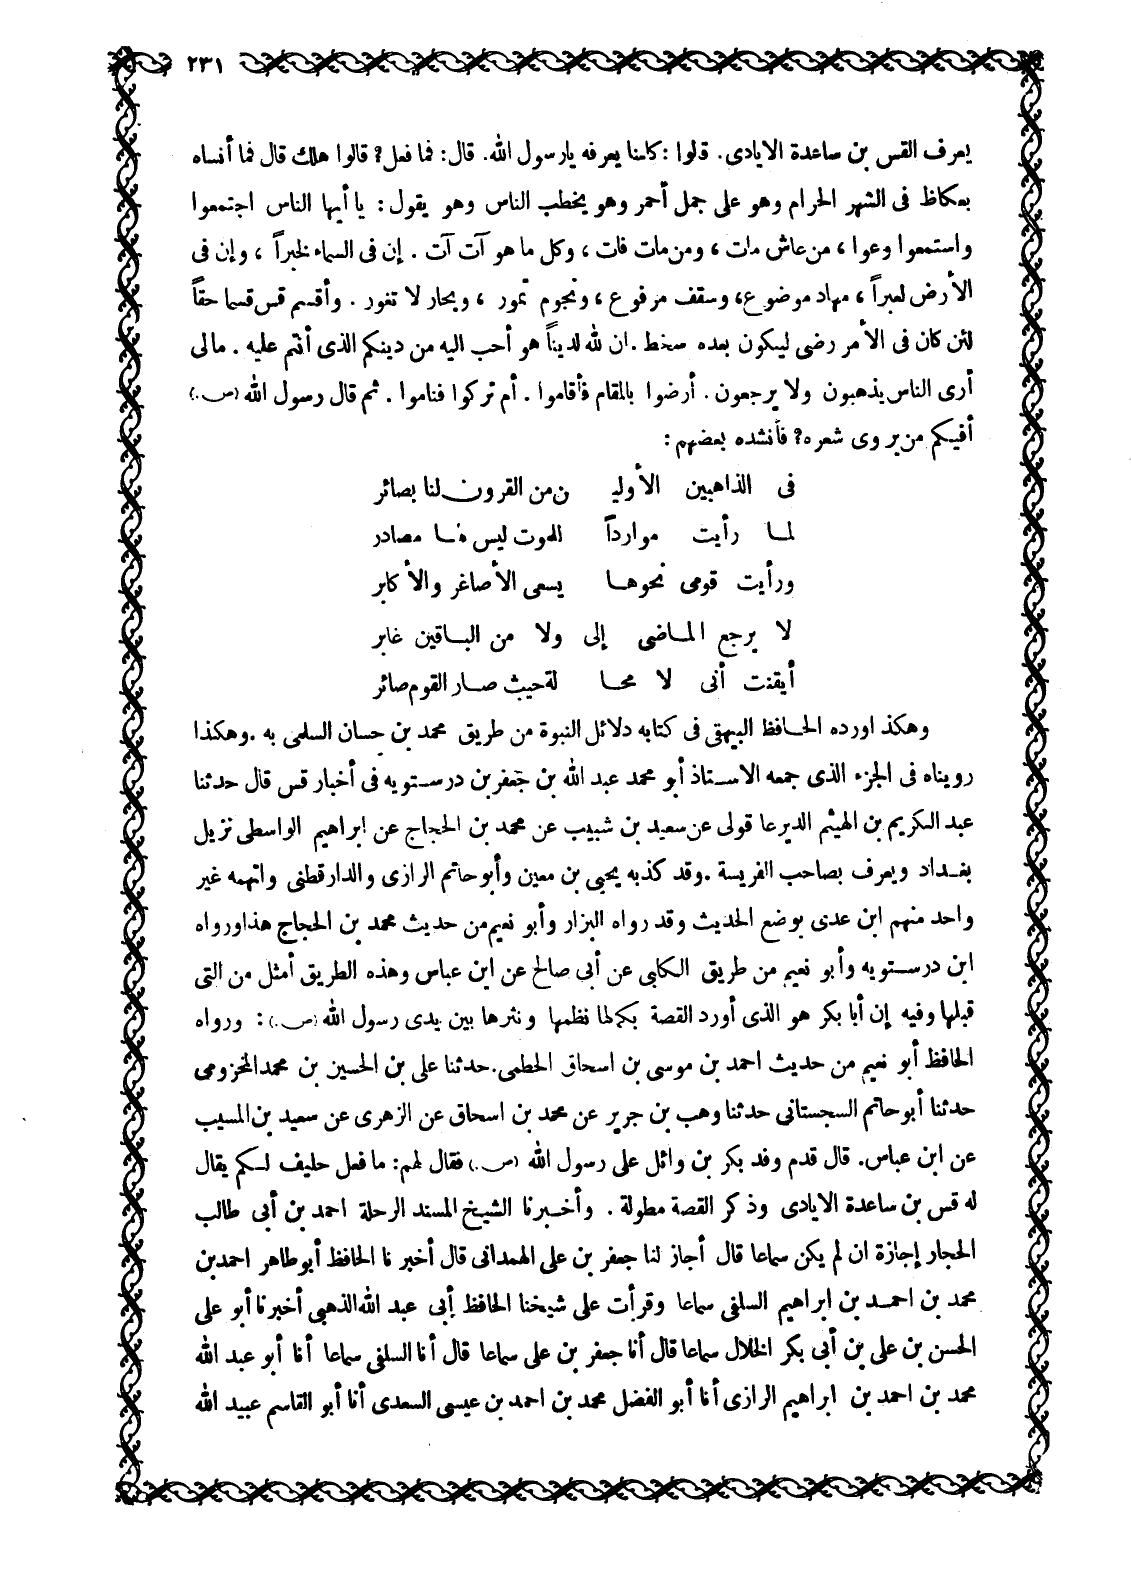 ٢٣١
يعرف القس بن ساعدة الايادى. قلوا : كلنا يعرفه يارسول الله. قال: فما فعل؟ قالوا هلك قال فما أنساه
بعكاظ فى الشهر الحرام وهو على جمل أحمر وهو يخطب الناس وهو يقول : يا أيها الناس اجتمعوا
واستمعوا وعوا ، من عاش مات ، ومن مات فات ، وكل ما هو آت آت . إن فى السماء لخبراً ، وإن فى
الأرض لعبراً ، مهاد موضوع، وسقف مرفوع ، ونجوم تمور ، وبحار لا تغور . وأقسم قس قسما حقاً
لئن كان فى الأمر رضى ليكون بعده سخط . ان لله لديناً هو أحب اليه من دينكم الذى أنتم عليه . مالى
أرى الناس يذهبون ولا يرجعون. أرضوا بالمقام فأقاموا . أم تركوا فناموا . ثم قال رسول الله (ص.)
أفيكم من يروى شعره؟ فأنشده بعضهم :
فى الذاهبين الأولي ن من القرون لنا بصائر
لما رأيت موارداً للموت ليس لها مصادر
ورأيت قومى نحوها يسعى الأصاغر والأكابر
لا يرجع الماضى إلى ولا من الباقين غابر
أيقنت أنى لا محا لة حيث صار القوم صائر
وهكذ اورده الحافظ البيهقى فى كتابه دلائل النبوة من طريق محمد بن حسان السلمى به . وهكذا
رويناه فى الجزء الذى جمعه الاستاذ أبو محمد عبد الله بن جعفر بن درستويه فى أخبار قس قال حدثنا
عبد الكريم بن الهيثم الديرعا قولى عن سعيد بن شبيب عن محمد بن الحجاج عن ابراهيم الواسطى نزيل
بغداد ويعرف بصاحب الفريسة . وقد كذبه يحيى بن معين وأبو حاتم الرازى والدارقطنى واتهمه غير
واحد منهم ابن عدى بوضع الحديث وقد رواه البزار وأبو نعيم من حديث محمد بن الحجاج هذا ورواه
ابن درستويه وأبو نعيم من طريق الكلبى عن أبى صالح عن ابن عباس وهذه الطريق أمثل من التى
قبلها وفيه إن أبا بكر هو الذى أورد القصة بكمالها نظمها ونثرها بين يدى رسول الله (ص.) : ورواه
الحافظ أبو نعيم من حديث احمد بن موسى بن اسحاق الحطمى. حدثنا على بن الحسين بن محمد المخزومى
حدثنا أبو حاتم السجستانى حدثنا وهب بن جرير عن محمد بن اسحاق عن الزهرى عن سعيد بن المسيب
عن ابن عباس. قال قدم وفد بكر بن وائل على رسول الله (ص.) فقال لهم: ما فعل حليف لكم يقال
له قس بن ساعدة الايادى وذكر القصة مطولة . وأخبرنا الشيخ المسند الرحلة احمد بن أبى طالب
الحجار إجازة ان لم يكن سماعا قال أجاز لنا جعفر بن على الهمدانى قال أخبرنا الحافظ أبو طاهر احمد بن
محمد بن احمد بن ابراهيم السلفى سماعا وقرأت على شيخنا الحافظ أبى عبد الله الذهبى أخبرنا أبو على
الحسن بن على بن أبى بكر الخلال سماعا قال أنا جعفر بن على سماعا قال أنا السلفى سماعا أنا أبو عبد الله
محمد بن احمد بن ابراهيم الرازى أنا أبو الفضل محمد بن احمد بن عيسى السعدى أنا أبو القاسم عبيد الله